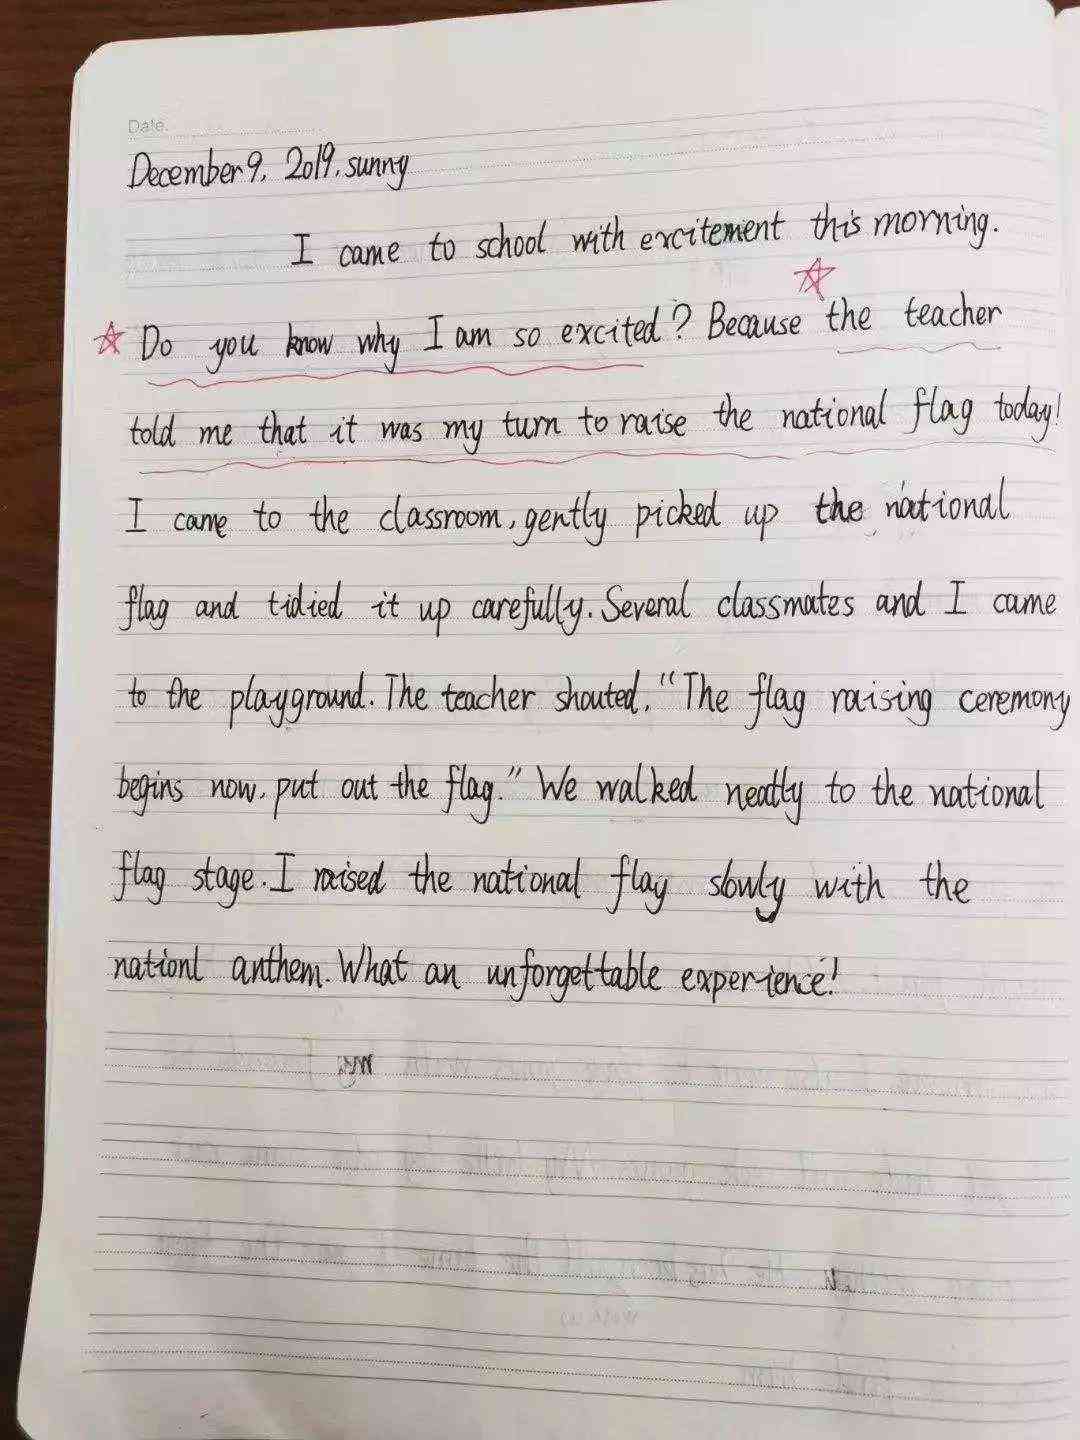 Date.
December 9, 2019, sunny
I came to school with excitement this morning.
Do you know why I am so excited? Because the teacher
told me that it was my turn to raise the national flag today!
I came to the classroom, gently picked up the national
flag and tidied it up carefully. Several classmates and I came
to the playground. The teacher shouted, "The flag raising ceremony
begins now, put out the flag." We walked neatly to the national
flag stage. I raised the national flag slowly with the
nationl anthem. What an unforgettable experience!